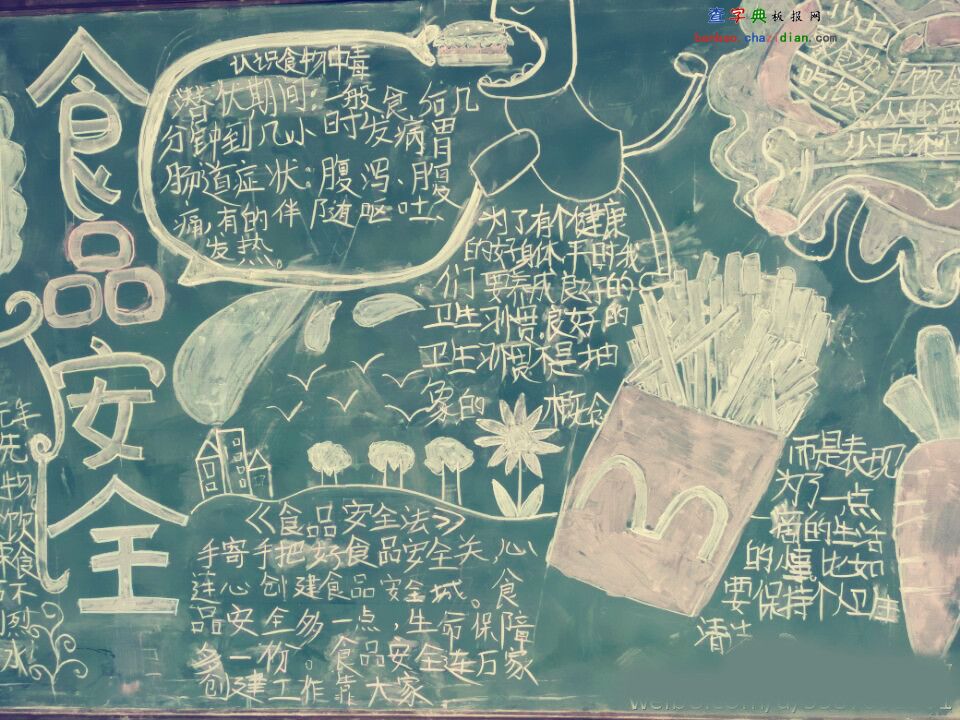 查字典板报网
banbao.chazidian.com
食品安全
认识食物中毒
潜伏期间:一般食后几
分钟到几小时发病胃
肠道症状:腹泻、腹
痛,有的伴随呕吐、
发热。
为了有个健康
的好身体,平时我
们要养成良好的
卫生习惯,良好的
卫生习惯不是抽
象的概念
而是表现
为了一点
一滴的生活
的小事,比如
要保持个人卫生
清洁
《食品安全法》
手寄手把好食品安全关,心
连心创建食品安全城。食
品安全多一点,生命保障
多一份。食品安全连万家
创建工作靠大家
少吃
吃饭
饮食